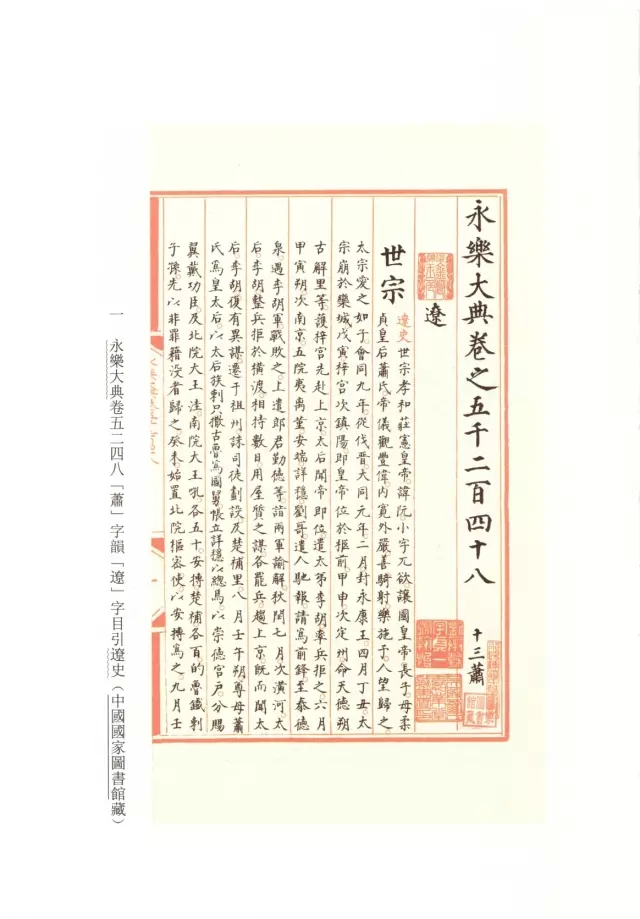 永樂大典卷之五千二百四十八 十三蕭
遼
世宗 遼史世宗孝和莊憲皇帝諱阮小字兀欲讓國皇帝長子母柔
貞皇后蕭氏帝儀觀豐偉內寬外嚴善騎射樂施予人望歸之
太宗愛之如子會同九年從伐晉大同元年二月封永康王四月丁丑太
宗崩於欒城戊寅梓宮次鎮陽即皇帝位於柩前甲申次定州命天德朔
古解里等護梓宮先赴上京太后聞帝即位遣太弟李胡率兵拒之六月
甲寅朔次南京五院夷离堇安端詳穩劉哥遣人馳報請爲前鋒至泰德
泉遇李胡軍戰敗之上遣郎君勤德等詣兩軍諭解秋閏七月次潢河太
后李胡整兵拒於橫渡相持數日用屋質之謀各罷兵趨上京既而聞太
后李胡復有異謀遷于祖州誅司徒劃設及楚補里八月壬午朔尊母蕭
氏爲皇太后以太后族剌只撒古魯爲國舅帳立詳穩以總焉以崇德宮戶分賜
翼戴功臣及北院大王洼南院大王吼各五十安摶楚補各百的魯鐵剌
子孫先以非罪籍沒者歸之癸未始置北院樞密使以安摶爲之九月壬
一 永樂大典卷五二四八「蕭」字韻「遼」字目引遼史（中國國家圖書館藏）